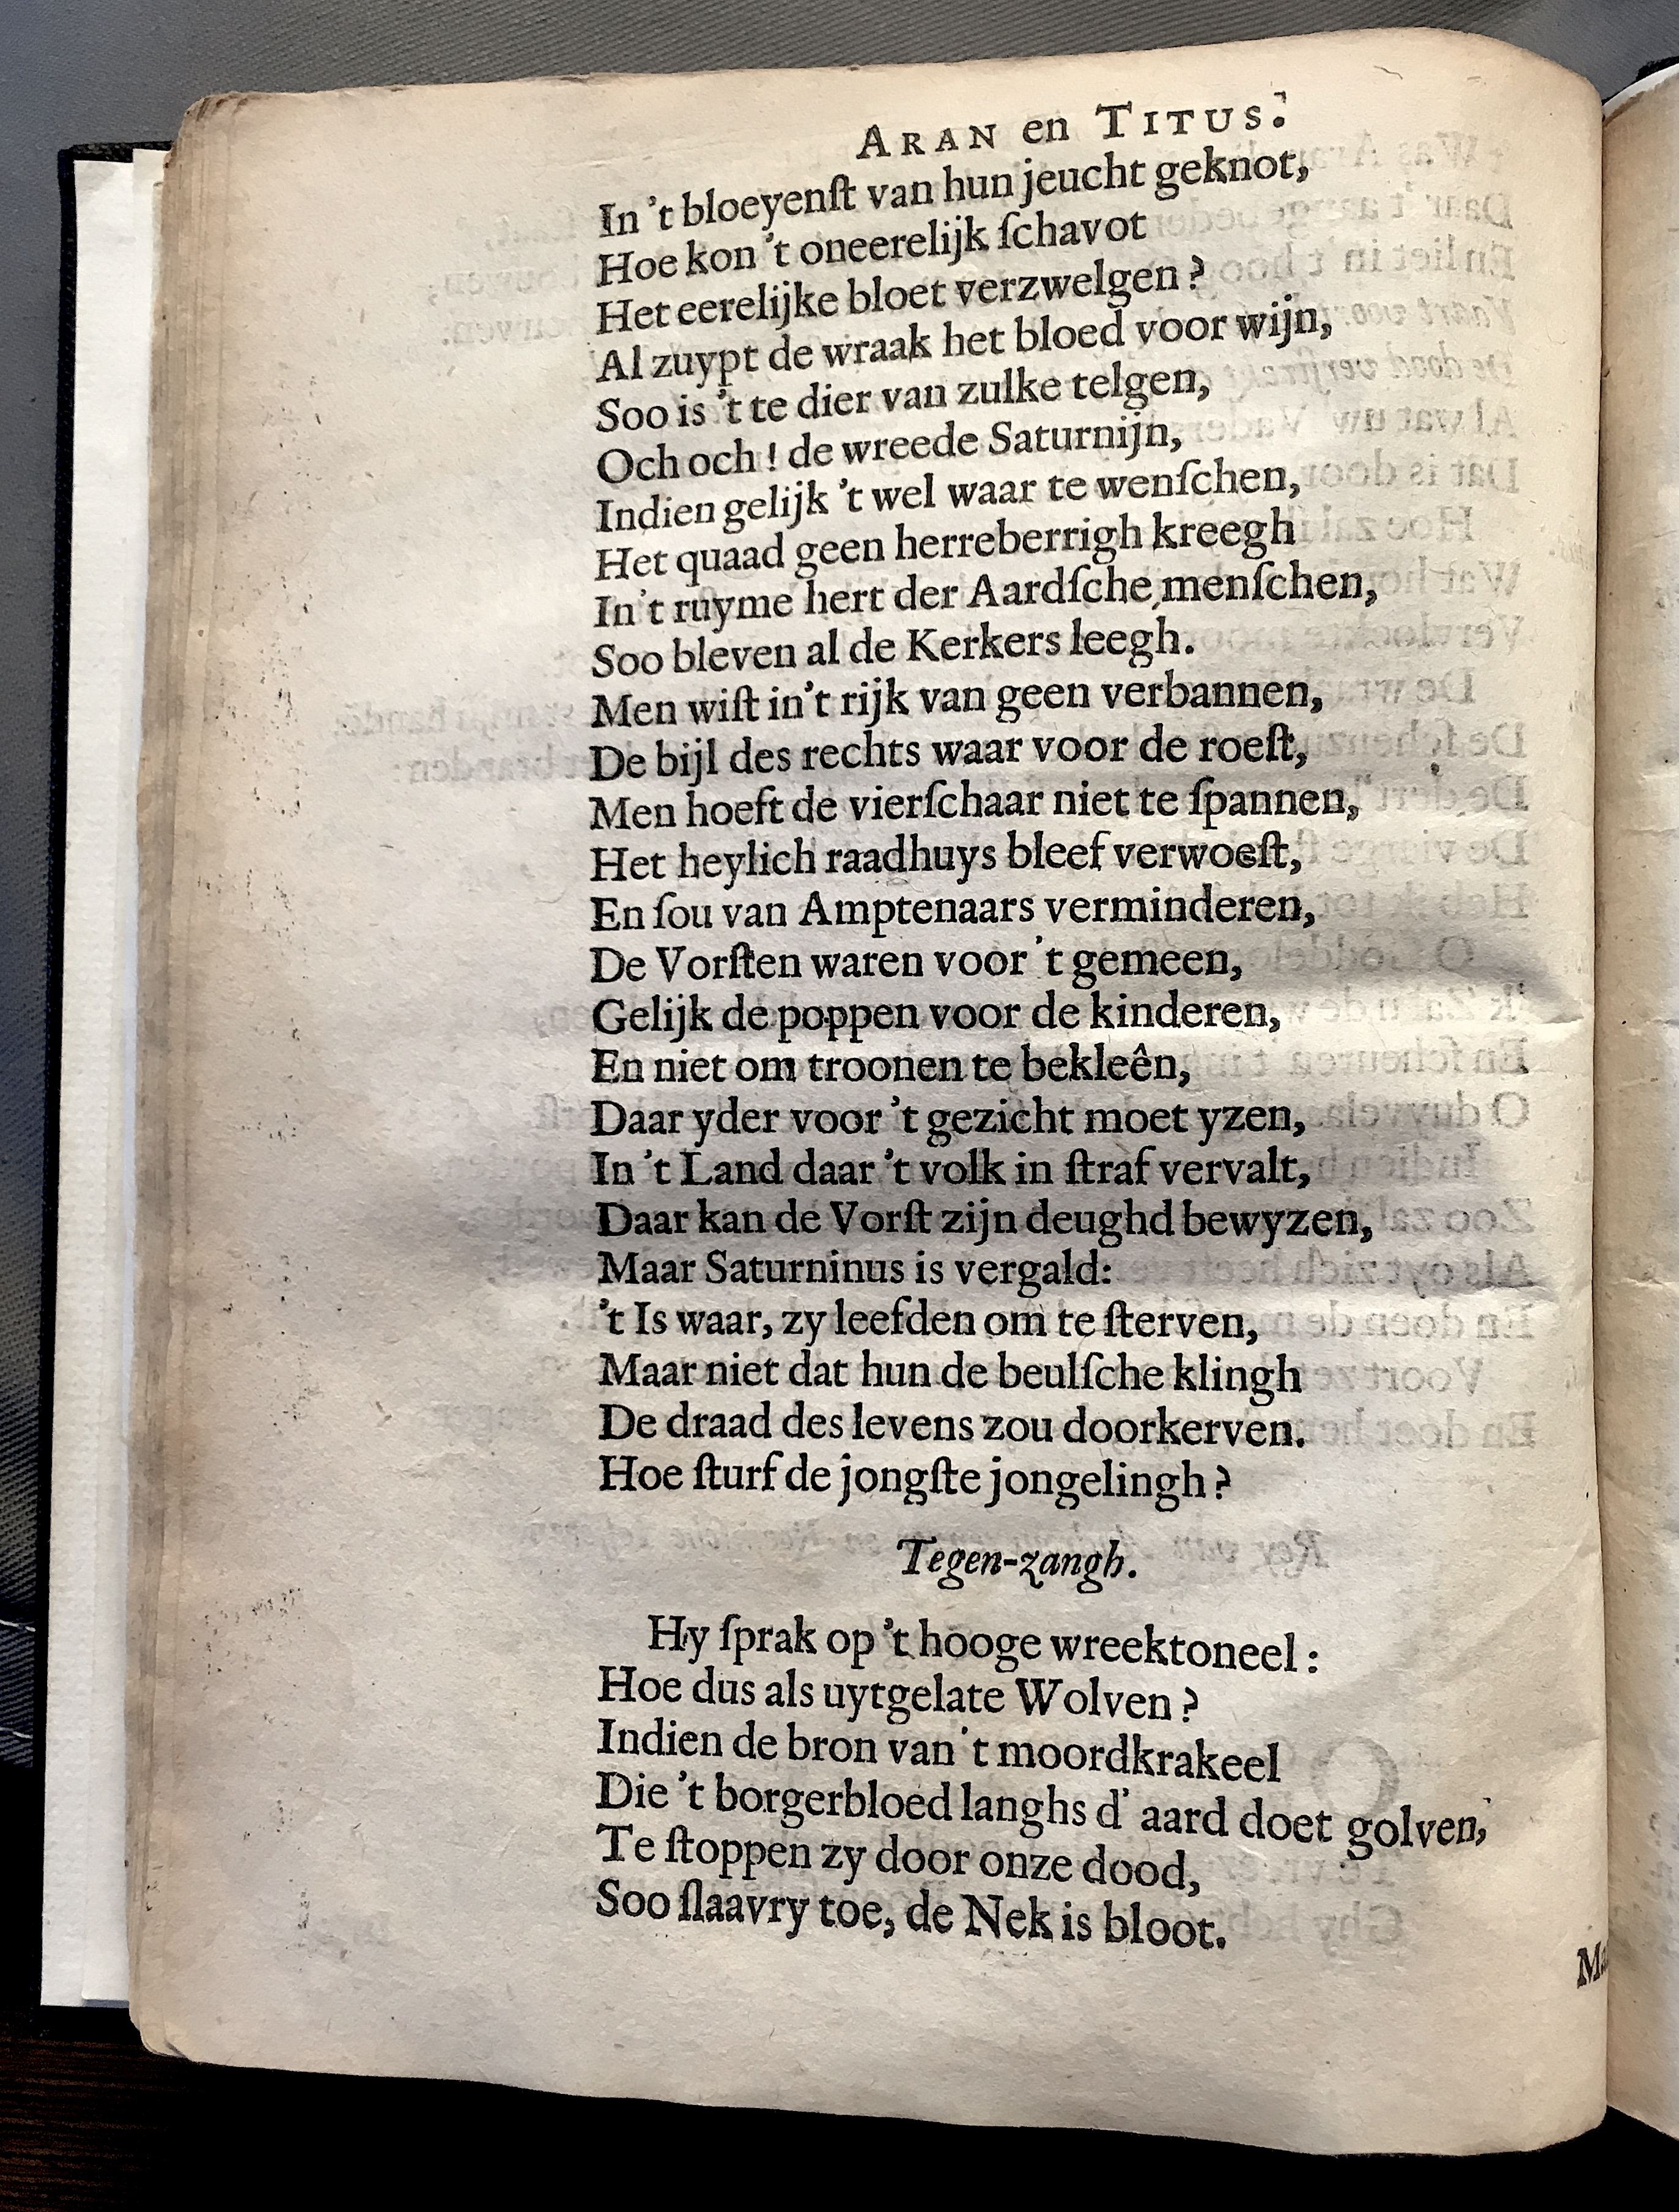 ARAN en TITUS.
In 't bloeyenſt van hun jeucht geknot,
Hoe kon 't oneerelijk ſchavot
Het eerelijke bloet verzwelgen?
Al zuypt de wraak het bloed voor wijn,
Soo is 't te dier van zulke telgen,
Och och! de wreede Saturnijn,
Indien gelijk 't wel waar te wenſchen,
Het quaad geen herreberrigh kreegh
In't ruyme hert der Aardſche menſchen,
Soo bleven al de Kerkers leegh.
Men wiſt in't rijk van geen verbannen,
De bijl des rechts waar voor de roeſt,
Men hoeft de vierſchaar niet te ſpannen,
Het heylich raadhuys bleef verwoeſt,
En ſou van Amptenaars verminderen,
De Vorſten waren voor 't gemeen,
Gelijk de poppen voor de kinderen,
En niet om troonen te bekleên,
Daar yder voor 't gezicht moet yzen,
In 't Land daar 't volk in ſtraf vervalt,
Daar kan de Vorſt zijn deughd bewyzen,
Maar Saturninus is vergald:
't Is waar, zy leefden om te ſterven,
Maar niet dat hun de beulſche klingh
De draad des levens zou doorkerven.
Hoe ſturf de jongſte jongelingh?
Tegen-zangh.
Hy ſprak op 't hooge wreektoneel:
Hoe dus als uytgelate Wolven?
Indien de bron van 't moordkrakeel
Die 't borgerbloed langhs d' aard doet golven,
Te ſtoppen zy door onze dood,
Soo ſlaavry toe, de Nek is bloot.